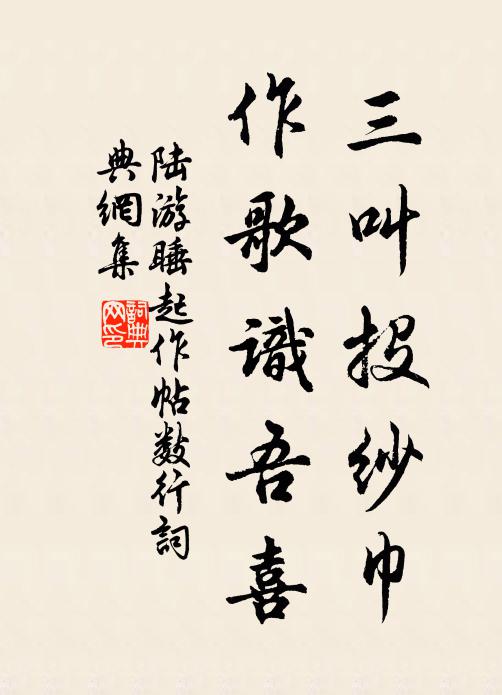 三叫投纱巾
作歌識吾喜
陆游睡起作帖数行詞
典網集
詞典
网印